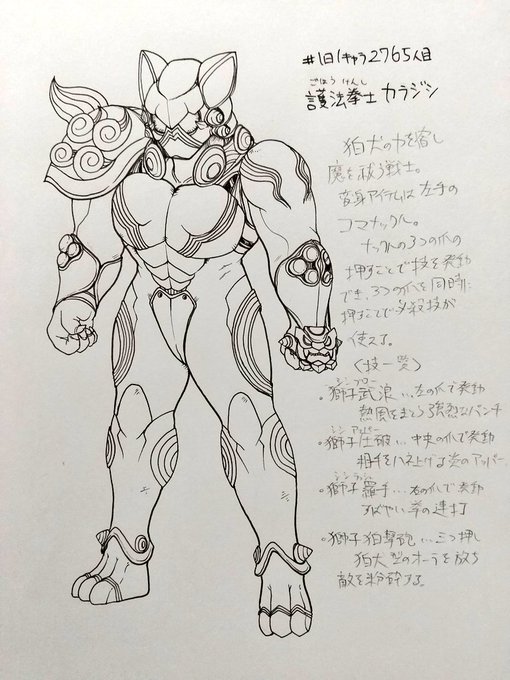 #1日1キャラ2765人目
ごほう けんし
護法拳士 カラジシ
狛犬の力を宿し
魔を祓う戦士。
変身アイテムは左手の
コマナックル。
ナックルの3つの爪の
押すことで技を発動
でき、3つの爪を同時に
押すことで必殺技が
使える。
〈技一覧〉
シンブロー
・獅子武浪…左の爪で発動
熱風をまとう強烈なパンチ
シシアッパー
・獅子圧破…中央の爪で発動
相手をハネ上げる炎のアッパー
シシラッシュ
・獅子羅手…右の爪で発動
すばやい拳の連打
・獅子狛撃砲…三つ押し
狛犬型のオーラを放ち
敵を粉砕する。